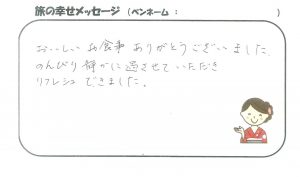 旅の幸せメッセージ（ペンネーム：　　　　　）
おいしいお食事ありがとうございました。
のんびり静かに過させていただき
リフレッシュできました。